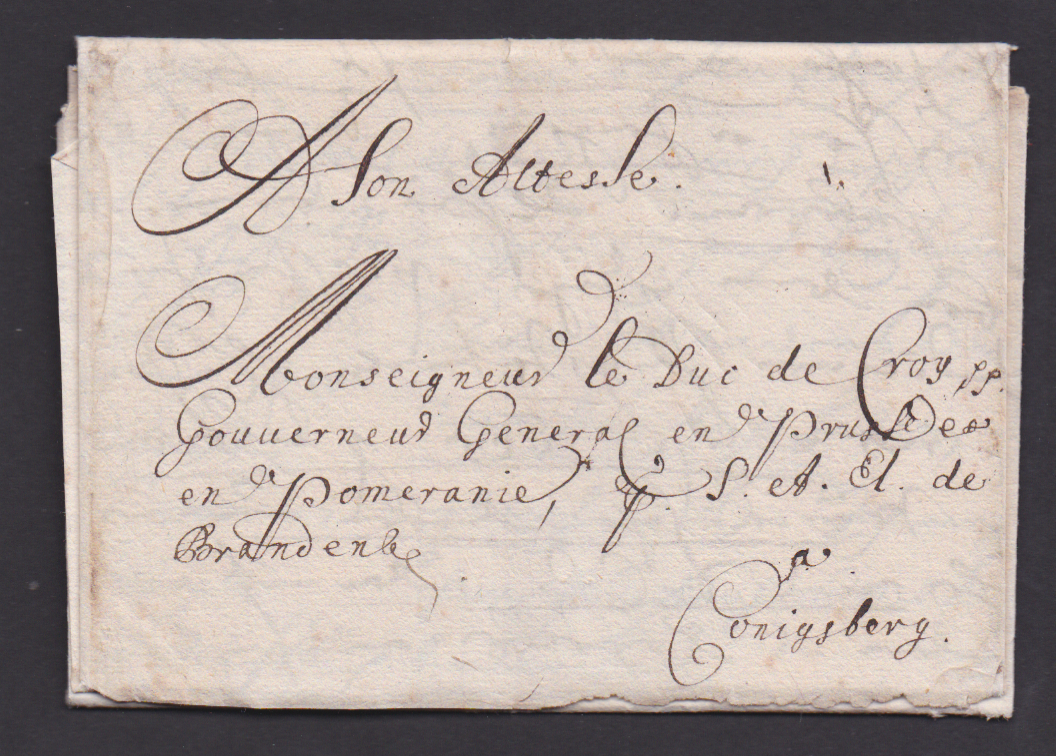 A Son Altesse.
Monseigneur le Duc de Croy pp.
Gouverneur General en Prusse
en Pomeranie, p. S. A. El. de
Brandenb.
a
Conigsberg.